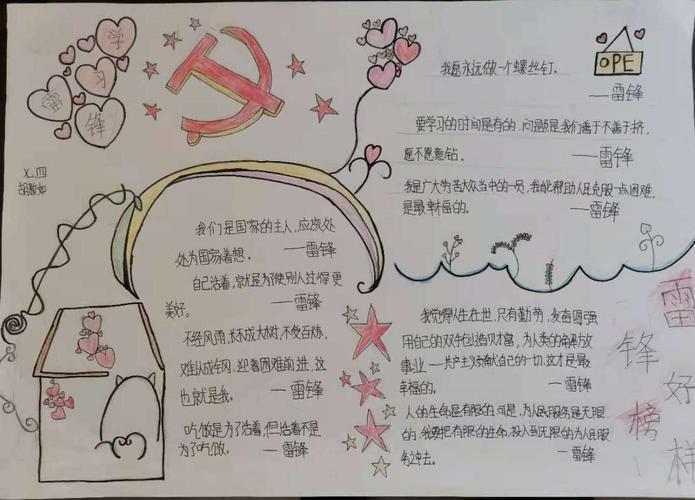 学
习
雷
锋
OPE
我愿永远做一个螺丝钉。
——雷锋
要学习的时间是有的，问题是我们善于不善于挤，
愿不愿意钻。 ——雷锋
我是广大劳苦大众当中的一员，我能帮助人民克服一点困难，
是最幸福的。 ——雷锋
我们是国家的主人，应该处
处为国家着想。 ——雷锋
自己活着，就是为了使别人过得更
美好。 ——雷锋
不经风雨，长不成大树，不受百炼，
难以成钢。迎着困难前进，这
也就是我。 ——雷锋
吃饭是为了活着，但活着不是
为了吃饭。 ——雷锋
我觉得人生在世，只有勤劳，发奋图强
用自己的双手创造财富，为人类的解放
事业——共产主义贡献自己的一切，这才是最
幸福的。 ——雷锋
人的生命是有限的，可是，为人民服务是无限
的，我要把有限的生命，投入到无限的为人民服
务之中去。 ——雷锋
雷锋好榜样